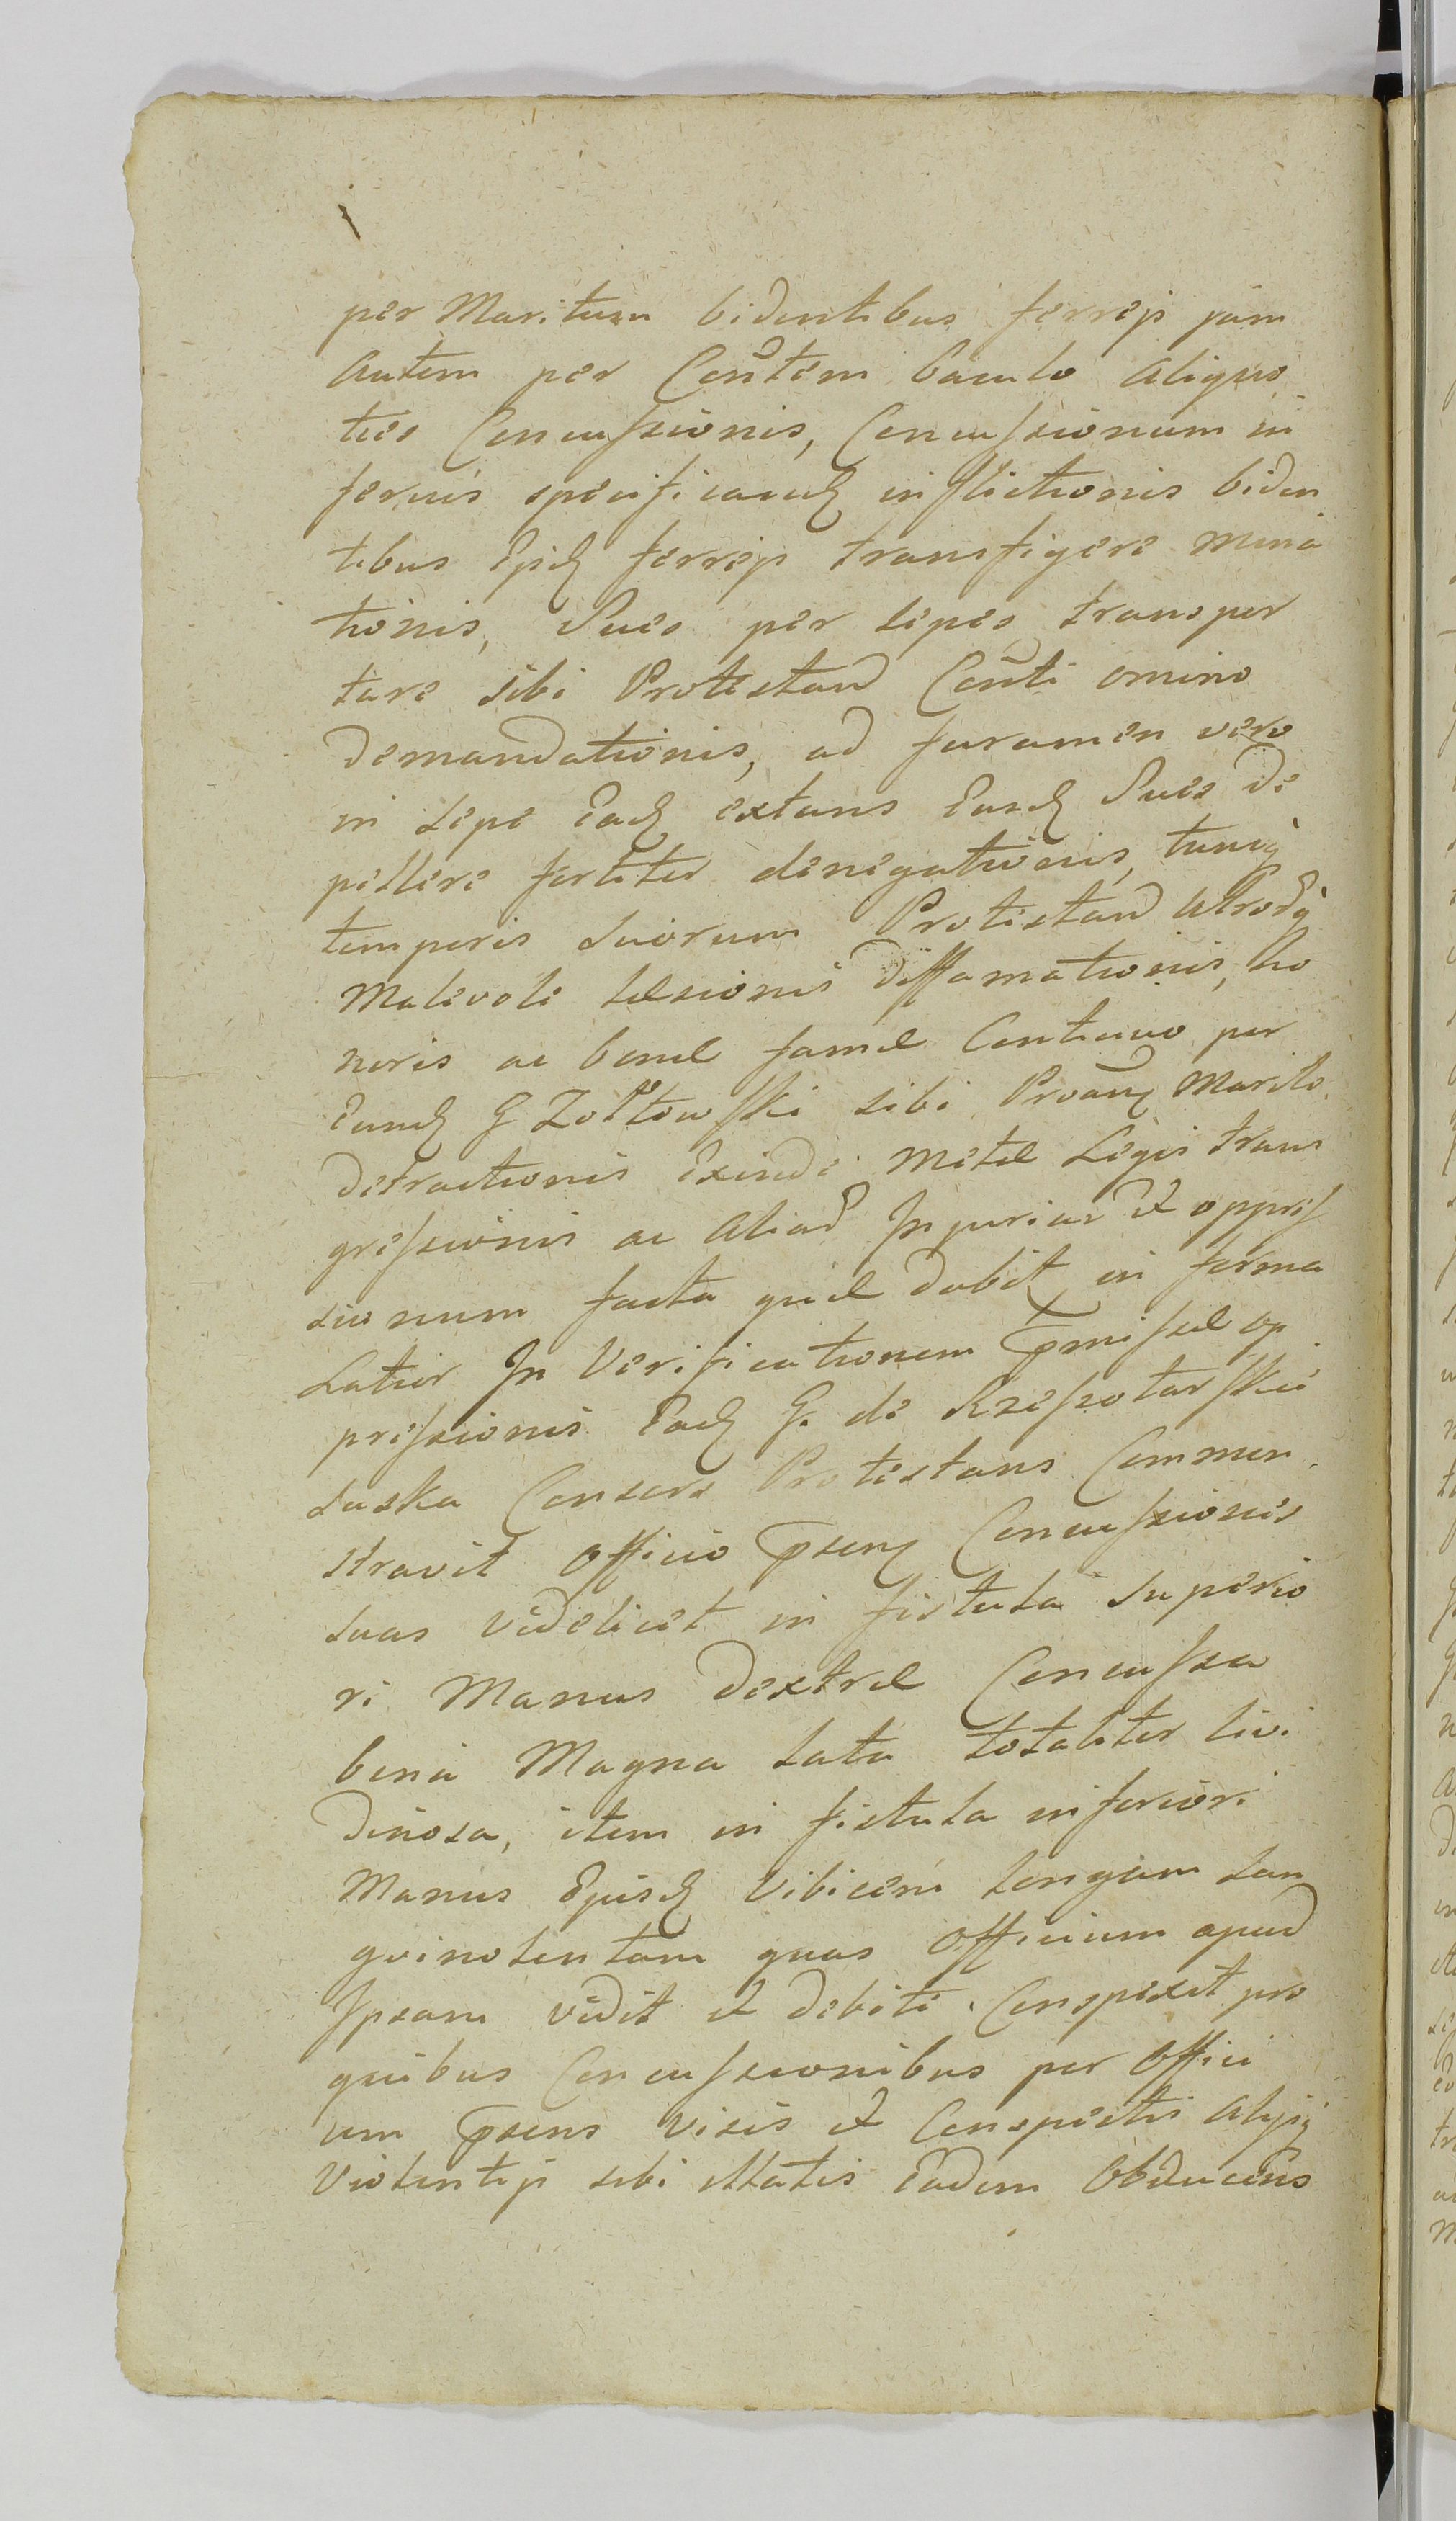 per Maritum bidentibus ferreis jam
autem per Cõñtem baculo aliquo
ties Concussionis, Concussionum in
ferius specificand inflictionis biden
tibus Ejusd ferreis transfigere mina
tionis, Sues per sepes transpor
tare sibi Protestand Cõñti omino
demandationis, ad foramen vero
in sepe Ead extans Easd Sues de
pellere fortiter denegationis, tuncq
temporis suorum Protestand utrorq
Malevole laesionis diffamationis, ho
noris ac bonae famae Continuo per
Eund G Zołtowski sibi Marito
detractionis Exinde metae Legis trans
gressionis ac aliar Injuriar et oppres
sionum facta quae dabit in forma
Latior In Verificationem pmissae op
pressionis Ead G. de Rzeszotarskie
suska Consors Protestans Commen
stravit Officio psenq Concussiones
suas videlicet in fistula superio
ri Manus dextrae Concussa
bena Magna lata totaliter livi
dinosa, item in fistula inferiori
Manus Ejusd Vibicem longam san
guinolentam quas Officium apud
Ipsam vidit et debite Conspexit pro
quibus Concussionibus per Offici
um psens visis et Conspectis alijsq
Violentijs sibi illatis Eadem Obducens